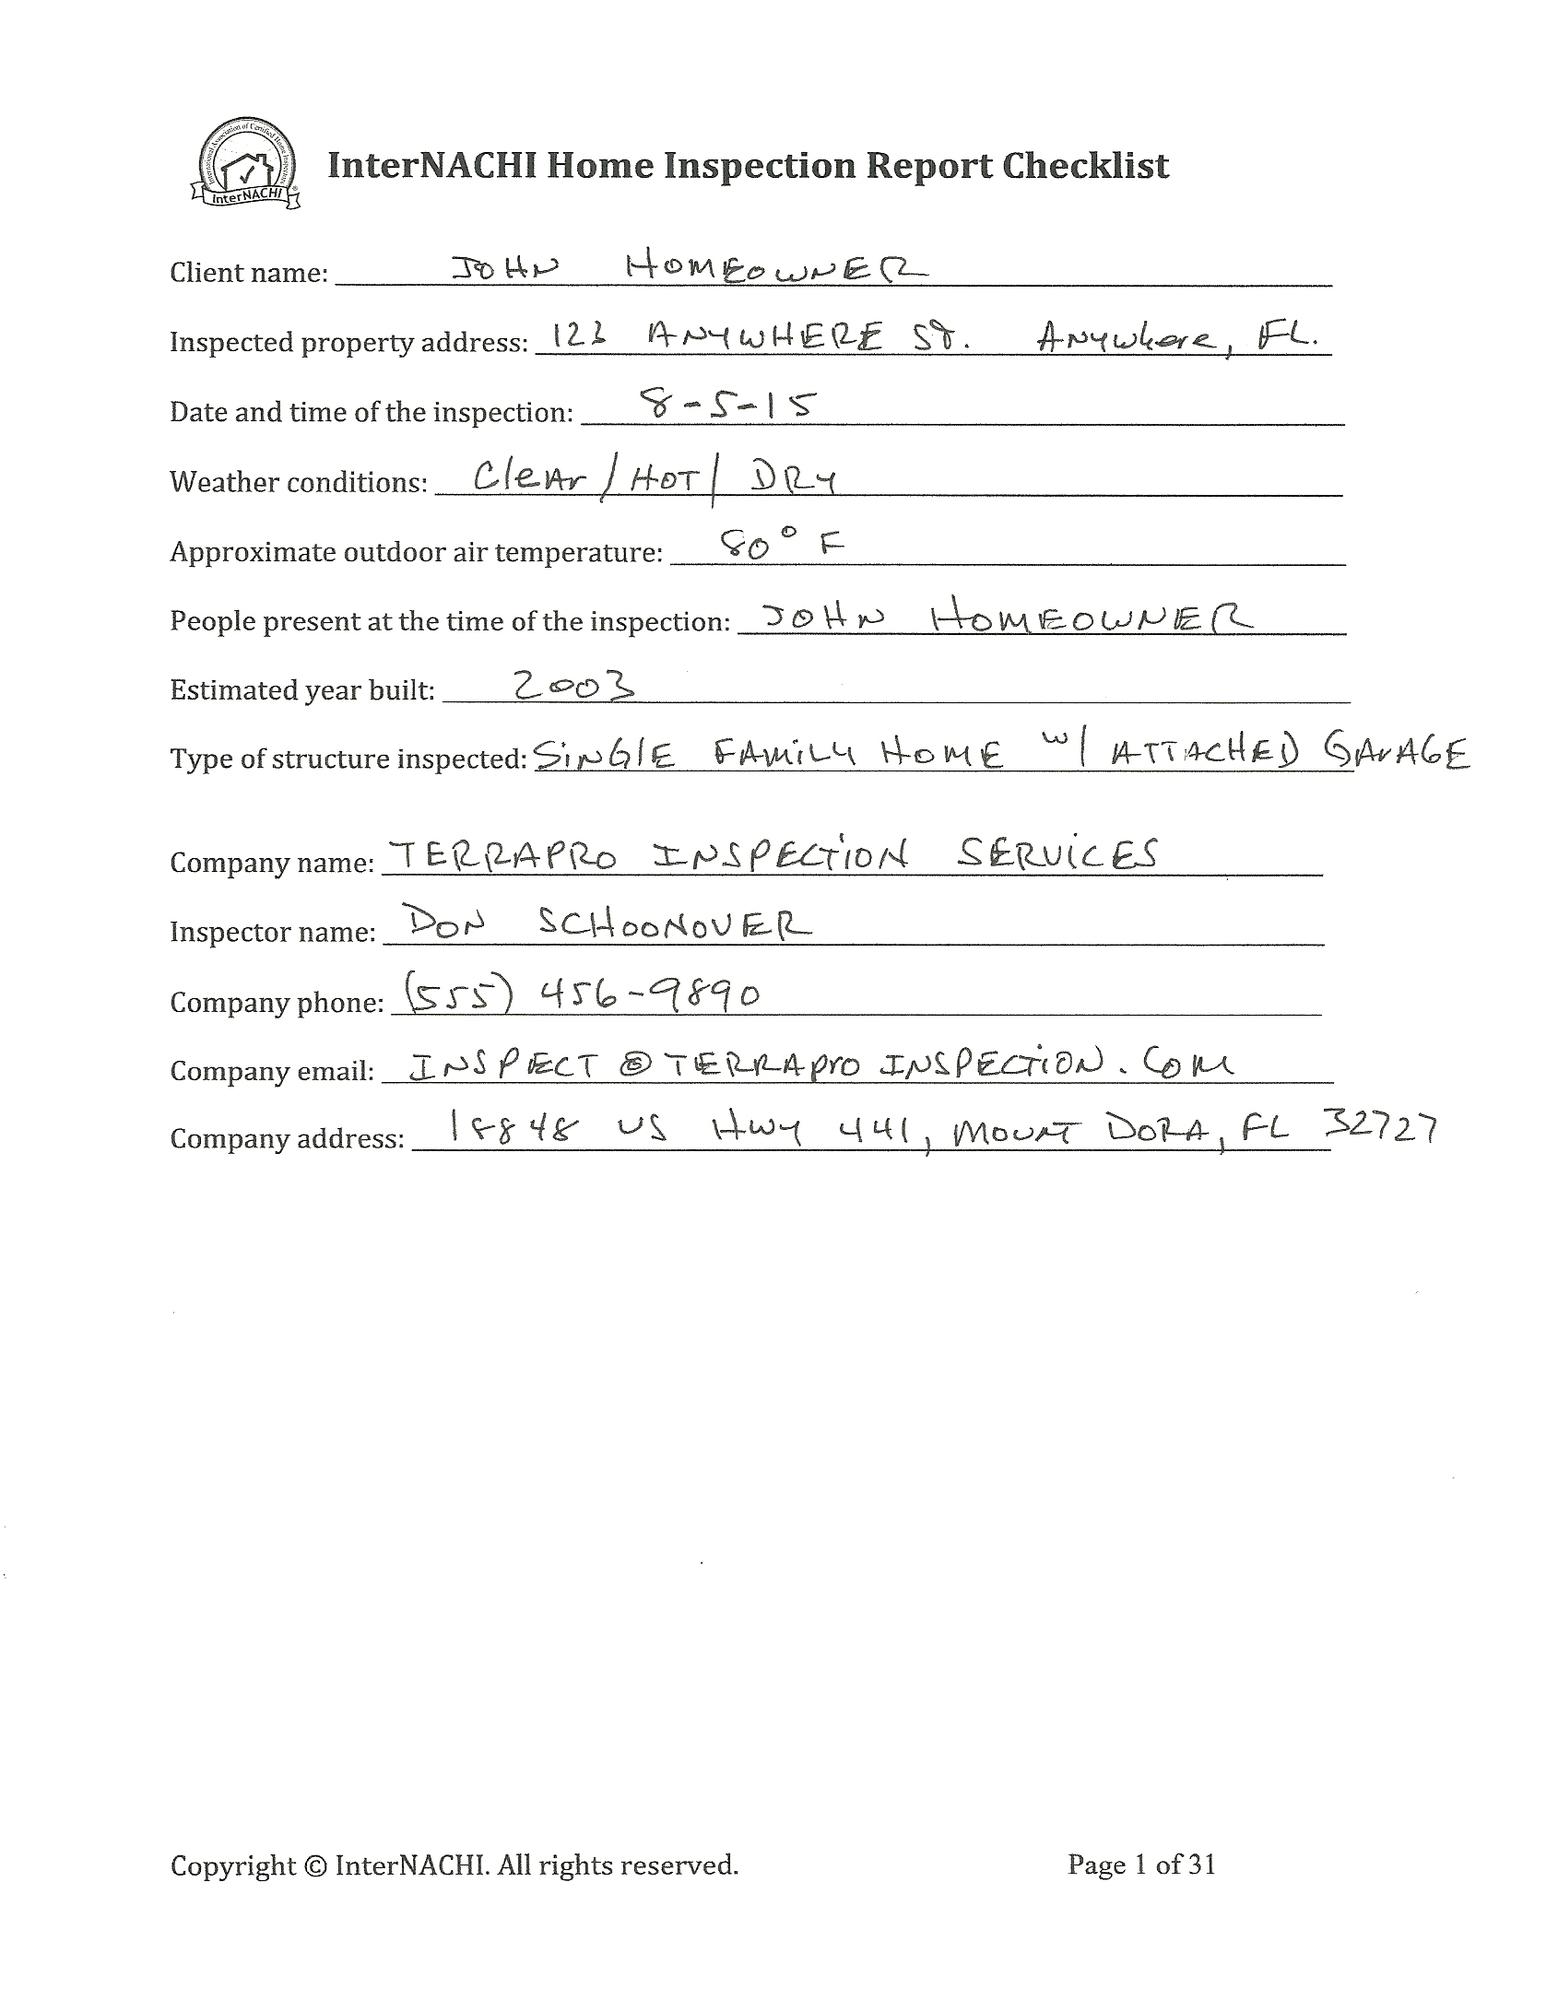 International Association of Certified Home Inspectors
InterNACHI®
InterNACHI Home Inspection Report Checklist
Client name: JOHN HOMEOWNER
Inspected property address: 123 ANYWHERE St. ANYWhere, FL.
Date and time of the inspection: 8-5-15
Weather conditions: CleAr / HOT / DRY
Approximate outdoor air temperature: 80° F
People present at the time of the inspection: JOHN HOMEOWNER
Estimated year built: 2003
Type of structure inspected: SiNGlE FAMiLY HOME w/ ATTACHED GArAGE
Company name: TERRAPRO INSPECTiON SERViCES
Inspector name: DON SCHOONOVER
Company phone: (555) 456-9890
Company email: INSPECT @ TERRAPro INSPECTiON . COM
Company address: 18848 US HWY 441, MOUNT DORA, FL 32727
Copyright © InterNACHI. All rights reserved. Page 1 of 31